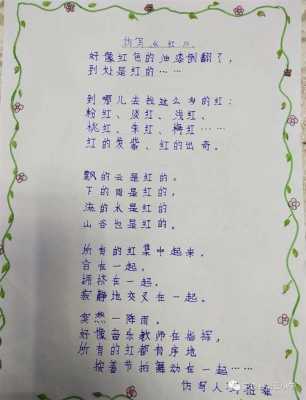 仿写《红》
好像红色的油漆倒翻了，
到处是红的……
到哪儿去找这么多的红：
粉红、淡红、浅红、
桃红、朱红、梅红……
红的发紫、红的出奇。
飘的云是红的，
下的雨是红的，
流的水是红的
山谷也是红的。
所有的红集中起来，
挤在一起，
拥挤在一起，
寂静地交叉在一起。
突然一阵雨，
好像音乐教师在指挥，
所有的红都有序地
按着节拍舞动在一起……
仿写人：